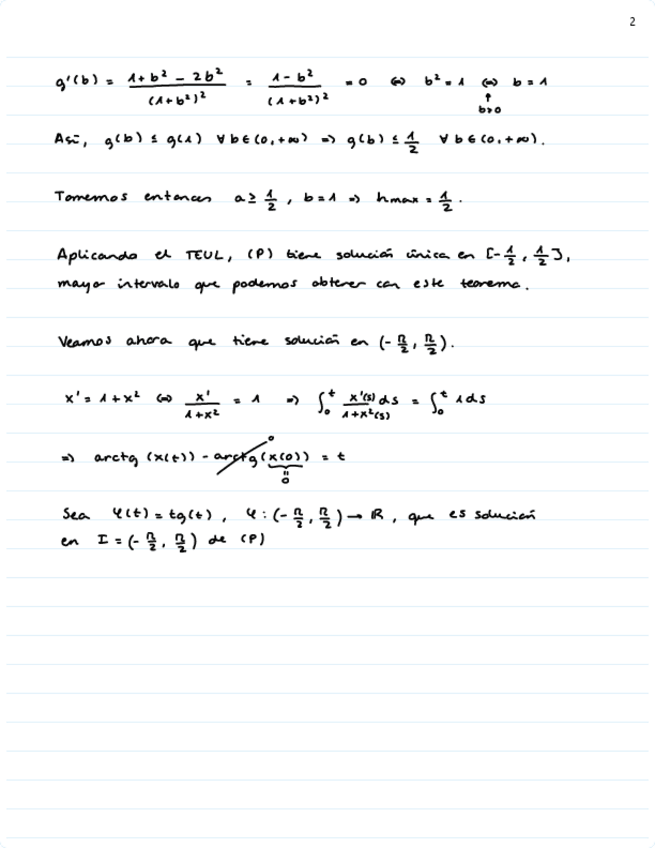 2
g'(b) = (1+b² - 2b²)/(1+b²)² = (1-b²)/(1+b²)² = 0 ⇔ b² = 1 ⇔ b = 1
↑
b>0
Así, g(b) ≤ g(1) ∀ b ∈ (0, +∞) ⇒ g(b) ≤ 1/2 ∀ b ∈ (0, +∞).
Tomemos entonces a ≥ 1/2, b=1 ⇒ hmax = 1/2.
Aplicando el TEUL, (P) tiene solución única en [-1/2, 1/2],
mayor intervalo que podemos obtener con este teorema.
Veamos ahora que tiene solución en (-π/2, π/2).
x' = 1+x² ⇔ x'/(1+x²) = 1 ⇒ ∫₀ᵗ x'(s)/(1+x²(s)) ds = ∫₀ᵗ 1 ds
⇒ arctg (x(t)) - arctg (x(0)) = t
0
=
0
Sea φ(t) = tg(t), φ: (-π/2, π/2) → ℝ, que es solución
en I = (-π/2, π/2) de (P)